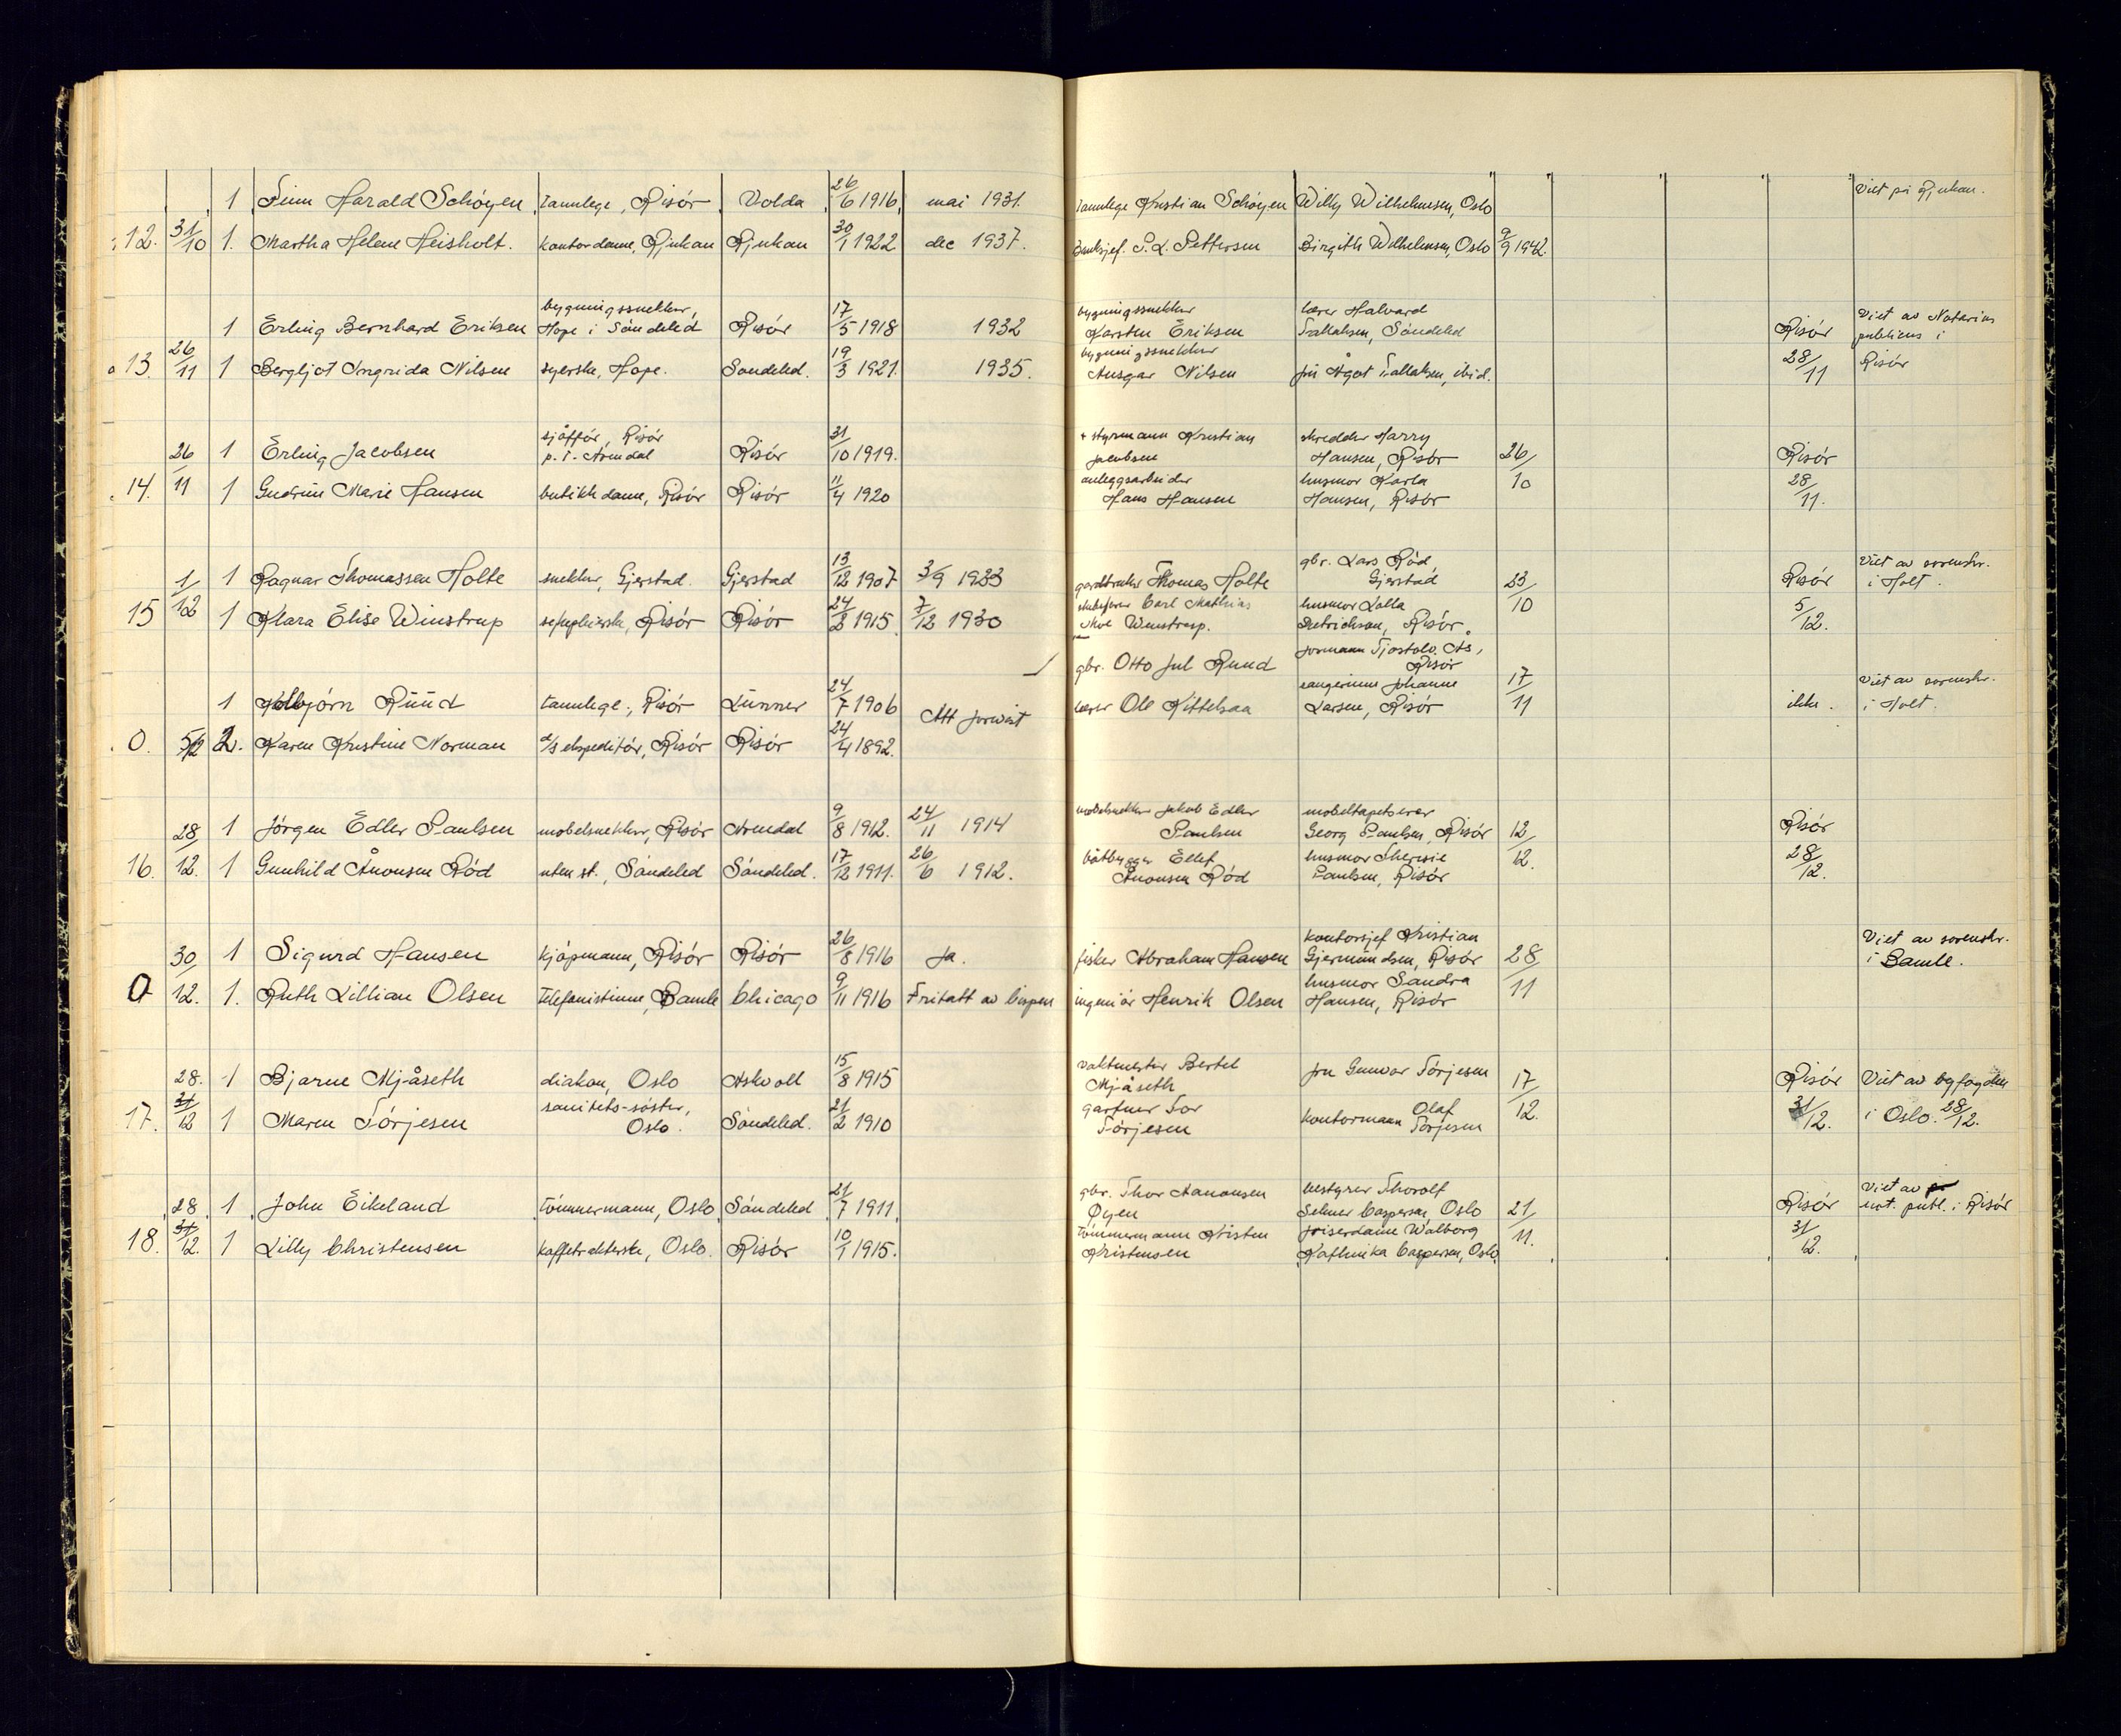 1 Finn Harald Schöyen tannlege, Risör Volda 26/6 1916 mai 1931. tannlege Kristian Schöyen Willy Wilhelmsen, Oslo Viet på Rjukan.
12. 31/10 1. Martha Helene Heisholt. kontordame, Rjukan Rjukan 30/1 1922 dec 1937. Banksjef. Pettersen Birgith Wilhelmsen, Oslo 9/9 1942.
bygningssnekker, 17/5 bygningssnekker lærer Halvard Viet av Notarius
1 Erling Bernhard Eriksen Hope i Söndeled Risör 1918 1932 Karsten Eriksen Tallaksen, Söndeled Risör publicus i
13. 26/11 1 Bergljot Ingrida Nilsen syerske, Hope. Sondeled. 19/3 1921. 1935. bygningssnekker Ansgar Nilsen fru Ågot Tallaksen, ibid. 28/11 Risör
sjåffør, Risör + styrmann Kristian skredder Harry
26 1 Erling Jacobsen p.t. Arendal Risör 31/10 1919. Jacobsen Hansen, Risör 26/ Risör
anleggsarbeider husmor Karla
14. 11 1 Gudrun Marie Hansen butikkdame, Risör Risör 11/4 1920 Hans Hansen Hansen, Risör 10 28/11.
gbr. Lars Röd, Viet av sorenskr.
1/ 1 Ragnar Thomassen Holte snekker, Gjerstad. Gjerstad 13/12 1907 3/9 1923 Thomas Holte Gjerstad 23/ Risör i Holt.
Carl Mathias husmor Lalla
15 12 1 Klara Elise Winstrup Risör Risör 24/2 1915. 7/12 1930 Winstrup. Dietrichson, Risör. 10 5/12.
gbr. Otto Jul Ruud formann Tjostolv. Ås, Risör
1 Kolbjörn Ruud tannlege, Risör Lunner 24/7 1906 Att forevist lærer Ole Kittelsaa sangerinne Johanne Larsen, Risör 17/11 ikke. Viet av sorenskr. i Holt.
0. 5/12 2. Karen Kristine Norman a/s ekspeditör, Risör Risör 24/4 1892.
möbelsnekker Jakob Edler möbeltapetserer
28/ 1 Jörgen Edler Paulsen mobelsnekker, Risör Arendal 9/8 1912. 24/11 1914 Paulsen Georg Paulsen, Risör 12/ Risör
båtbygger Ellef husmor Theresie
16. 12. 1 Gunhild Ånonsen Röd uten st., Söndeled Söndeled. 17/12 1911. 26/6 1912. Ånonsen Röd Paulsen, Risör 12. 28/12.
kontorsjef Kristian Viet av sorenskr.
30/ 1 Sigurd Hansen kjöpmann, Risör Risör 26/8 1916 Ja. fisker Abraham Hansen Gjermundsen, Risör 28/ i Bamle.
husmor Sandra
0 12. 1. Ruth Lillian Olsen Telefonistinne, Bamle Chicago 9/11 1916 Fritatt av bispen ingeniör Henrik Olsen Hansen, Risör 11
vaktmester Bertel
28. 1 Bjarne Mjåseth diakon, Oslo Askvoll 15/8 1915 Mjåseth fru Gunvor Törjesen 17/ Risör Viet av byfogden
sanitets-söster, gartner Tor Olaf
17. 31/12 1 Maren Törjesen Oslo. Söndeled. 21/2 1910 Törjesen kontormann Törjesen 12. 31/12. i Oslo. 28/12.
gbr. Thor Aanonsen bestyrer Thorolf Viet av
28 1 John Eikeland Tömmermann, Oslo Söndeled 21/7 1911 Öyen Selmer Caspersen, Oslo 21/ Risör not. publ. i Risör
Tömmermann Kristen friserdame Walborg
18. 31/12. 1 Lilly Christensen kaffetrakterske, Oslo. Risör 10/1 1915. Kristensen Kathinka Caspersen, Oslo. 11. 31/12.